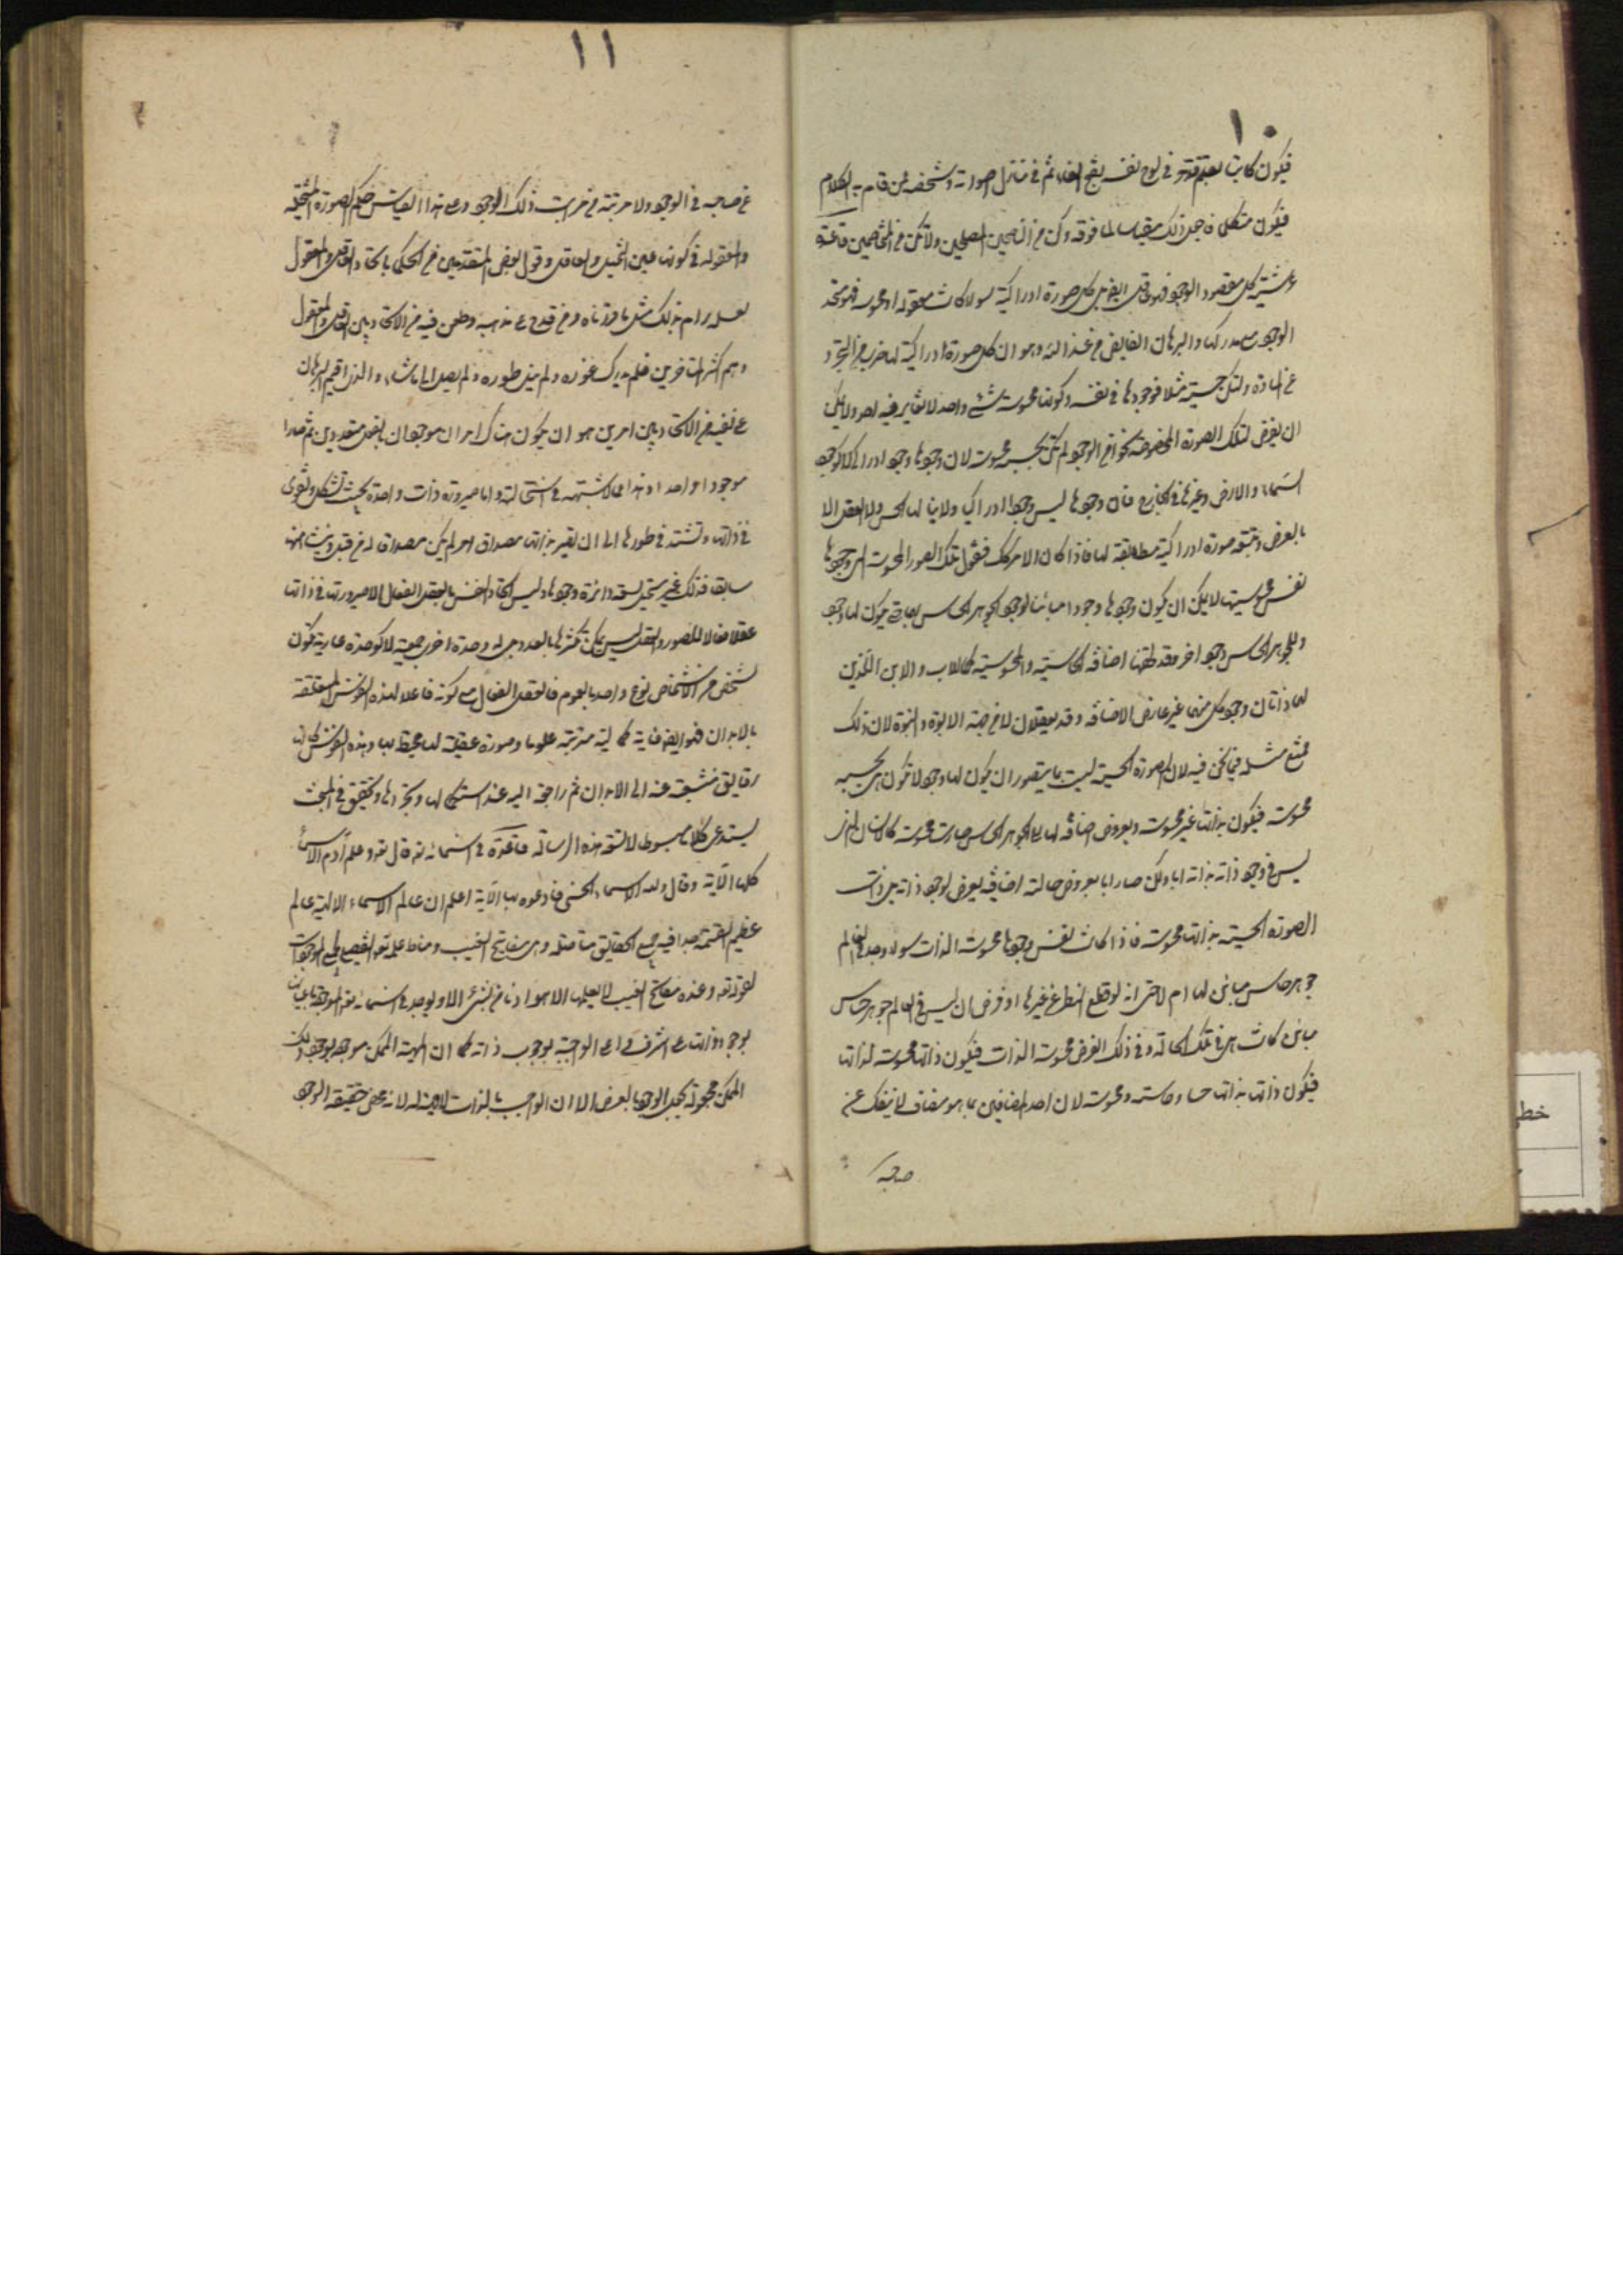 ١٠
فيكون كاتبا بقلم قدرته في لوح نفسه بفتح العقل ثم في تنزل صورته وشخصه ممن قام به الكلام
فيكون متكلما فاجعل ذلك مقياسا لما فوقه وكن من الناصحين المصلحين ولا تكن من المخاصمين قاعدة
عرشية كل معقول الوجود فهو عاقل ايضا بل كل صورة ادراكية سواء كانت معقولة او محسوسة فهو متحد
الوجود مع مدركها والبرهان الفايض من عند الله وهو ان كل صورة ادراكية لها ضرب من التجرد
عن المادة ولتكن حسية مثلا فوجودها في نفسه وكونها محسوسة شئ واحد لا تغاير فيه اصلا ولا يمكن
ان يفرض لتلك الصورة المخصوصة نحو من الوجود لم يكن بحسبه محسوسة لان وجودها وجود ادراكي لا كوجود
السماء والارض وغيرها في الخارج فان وجودها ليس وجودا ادراكيا ولا ينالها الحس ولا العقل الا
بالعرض وبتبعية صورة ادراكية مطابقة لها فاذا كان الامر كذلك فنقول تلك الصور المحسوسة التي وجودها
نفس محسوسيتها لا يمكن ان يكون وجودها وجودا مباينا لوجود الجوهر الحاس بها حتى يكون لها وجود
وللجوهر الحاس وجود اخر وقد لحقهما اضافة الحاسية والمحسوسية كما للاب والابن اللذين
لهما ذاتان وجود كل منهما غير عارض الاضافة وقد يعقلان لا من جهة الابوة والبنوة لان ذلك
ممتنع مثله فيما نحن فيه لان الصورة الحسية ليست مما يتصور ان يكون لها وجود لا تكون هي بحسبه
محسوسة فيكون بذاتها غير محسوسة وبعروض اضافة لها الى الجوهر الحاس صارت محسوسة كالانسان الذي
ليس في وجود ذاته بذاته ابا ولكن صار ابا بعروض حالة اضافية يعرض لوجود ذاته بل ذات
الصورة الحسية بذاتها محسوسة فاذا كانت نفس وجودها محسوسة الذات سواء وجد في العالم
جوهر حاس مباين لها ام لا حتى انه لو قطع النظر عن غيرها او فرض ان ليس في العالم جوهر حاس
مباين كانت هي في تلك الحالة وفي ذلك الفرض محسوسة الذات فيكون ذاتها محسوسة لذاتها
فيكون ذاتها بذاتها حسا وحاسة ومحسوسة لان احد المضافين بما هو مضاف لا ينفك عن
صاحبه
١١
عن صاحبه في الوجود ولا مرتبة من مراتب ذلك الوجود وعلى هذا القياس حكم الصورة المتخيلة
والمعقولة في كونها عين المتخيل والعاقل وقول بعض المتقدمين من الحكماء باتحاد العاقل والمعقول
لعله يرام بذلك مثل ما قررناه ومن قدح على مذهبه وطعن فيه من الاتحاد بين العاقل والمعقول
وهم اكثر المتاخرين فلم يدرك غوره ولم ينل طوره ولم يصل الى ما شاء والذي اقيم البرهان
على نفيه من الاتحاد بين امرين هو ان يكون هناك امران موجودان بالفعل متعددين ثم صارا
موجودا واحدا وهذا مما لا شبهة في استحالته واما صيرورة ذات واحدة بحيث تستكمل وتقوى
في ذاتها وتشتد في طورها الى ان تصير بذاتها مصداق امر لم يكن مصداقا له من قبل ونشأت منها
سابقا فذلك غير مستحيل لسعة دائرة وجودها وليس اتحاد النفس بالعقل الفعال الا صيرورتها في ذاتها
عقلا فعالا للصور والعقل ليس يمكن تكثرها بالعدد بل له وحدة اخرى جمعية لا كوحدة عددية تكون
لشخص من الاشخاص نوع واحد بالعموم فالعقل الفعال مع كونه فاعلا لهذه النفوس المتعلقة
بالابدان فهو ايضا غاية كمالية مترتبة عليها وصورة عقلية لها محيط بها وهذه النفوس كانها
رقايق منشعبة عنه الى الابدان ثم راجعة اليه عند استكمالها وتجردها وتحقيق في المبحث
يستدعي كلاما مبسوطا لا تسعه هذه الرسالة قاعدة في اسمائه تعالى قال تعالى وعلم آدم الاسماء
كلها الآية وقال ولله الاسماء الحسنى فادعوه بها الآية اعلم ان عالم الاسماء الالهية عالم
عظيم الفسحة جدا فيه جميع الحقايق متاصلة وهي مفاتيح الغيب ومناط علمه تعالى التفصيلي بجميع الموجودات
لقوله تعالى وعنده مفاتح الغيب لا يعلمها الا هو اذ ما من شئ الا ويوجد في اسمائه تعالى الموجودة باعيانها
بوجود ذاته على اشرف واعلى الواجبة بوجوب ذاته كما ان المهية الممكن موجودة بوجود ذلك
الممكن مجعولة بجعل الوجود بالعرض الا ان الواجب بالذات لا مهية له لانه محض حقيقة الوجود
خط